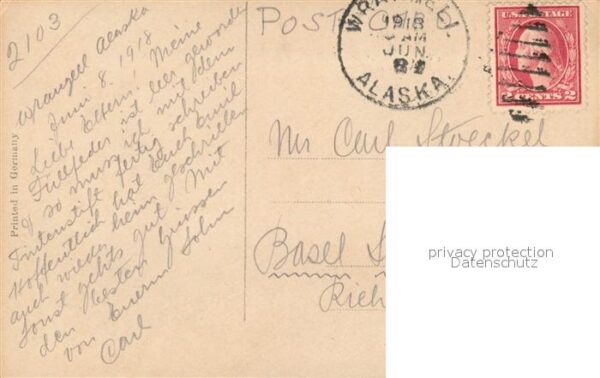 2103
Wrangell Alaska
Juni 8. 1918
Liebe Eltern! Meine
Füllfeder ist leer geworden
& so muss ich mit dem
Tintenstift fertig schreiben
Hoffentlich hat Euch Emil
auch wieder geschrieben
sonst gehts gut. Mit
den besten Grüssen
von Eurem Sohn
Carl
Printed in Germany
POST CARD
WRANGELL
1918
AM
JUN
ALASKA.
U.S. POSTAGE
2 CENTS 2
Mr Carl Stoeckel
Basel
Rieh
privacy protection
Datenschutz